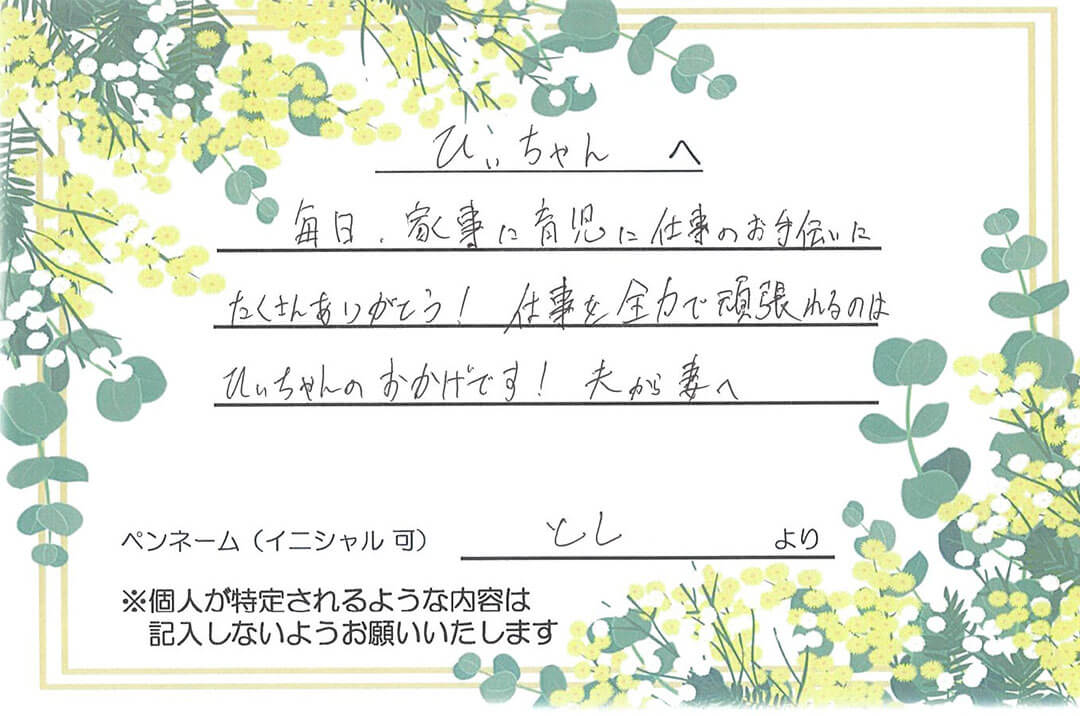 ひぃちゃん へ
毎日、家事に育児に仕事のお手伝いに
たくさんありがとう！ 仕事を全力で頑張れるのは
ひぃちゃんのおかげです！ 夫から妻へ
ペンネーム（イニシャル 可） とし より
※個人が特定されるような内容は
記入しないようお願いいたします